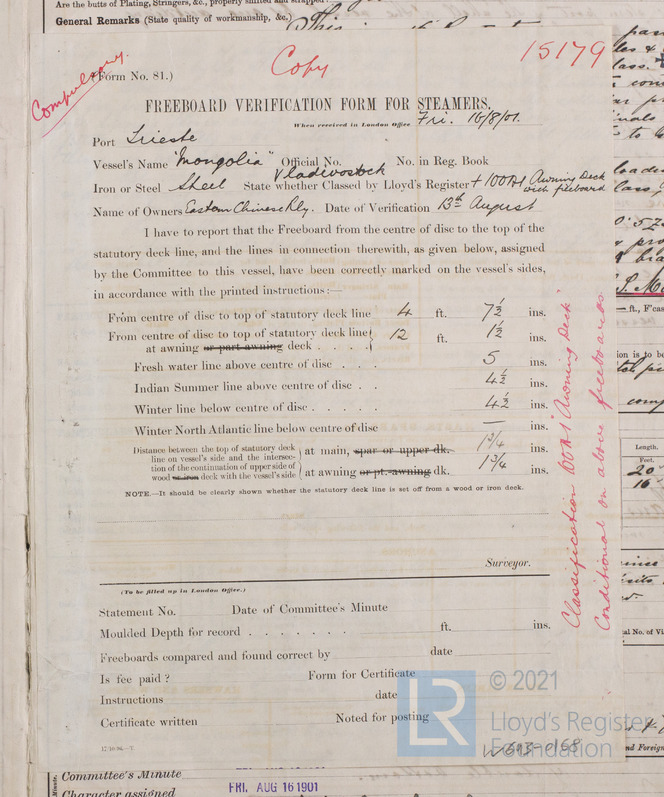 Are the butts of Plating, Stringers, &c., properly shifted and strapped?
General Remarks (State quality of workmanship, &c.)
Copy
15179
Compulsory.
(Form No. 81.)
FREEBOARD VERIFICATION FORM FOR STEAMERS.
When received in London Office Fri. 16/8/01.
Port Trieste
Vessel's Name "Mongolia" Official No. No. in Reg. Book
Vladivostock
Iron or Steel Steel State whether Classed by Lloyd's Register +100A1 Awning Deck
with freeboard
Name of Owners Eastern Chinese Rly. Date of Verification 13th August
I have to report that the Freeboard from the centre of disc to the top of the
statutory deck line, and the lines in connection therewith, as given below, assigned
by the Committee to this vessel, have been correctly marked on the vessel's sides,
in accordance with the printed instructions:—
From centre of disc to top of statutory deck line 4 ft. 7½ ins.
From centre of disc to top of statutory deck line 12 ft. 1½ ins.
at awning or part awning deck . . . .
Fresh water line above centre of disc . . . 5 ins.
Indian Summer line above centre of disc . . 4½ ins.
Winter line below centre of disc . . . . . 4½ ins.
Winter North Atlantic line below centre of disc — ins.
Distance between the top of statutory deck
line on vessel's side and the intersec-
tion of the continuation of upper side of
wood or iron deck with the vessel's side
at main, spar or upper dk. 1¾ ins.
at awning or pt. awning dk. 1¾ ins.
NOTE.—It should be clearly shown whether the statutory deck line is set off from a wood or iron deck.
Classification 100A1 "Awning Deck"
Conditional on above freeboards
Surveyor.
(To be filled up in London Office.)
Statement No. Date of Committee's Minute
Moulded Depth for record . . . . . . . ft. ins.
Freeboards compared and found correct by date
Is fee paid? Form for Certificate
Instructions date
Certificate written Noted for posting
17.10.96.—T.
LR
© 2021
Lloyd's Register
Foundation
W693-0168
Committee's Minute
FRI. AUG 16 1901
Character assigned
Length.
Feet.
20
16